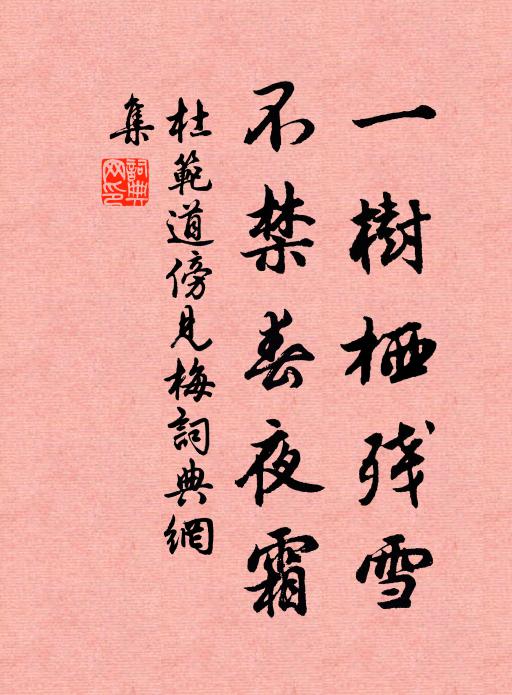 一樹栖残雪
不禁春夜霜
杜範道傍見梅詞典網
集
詞典
网印